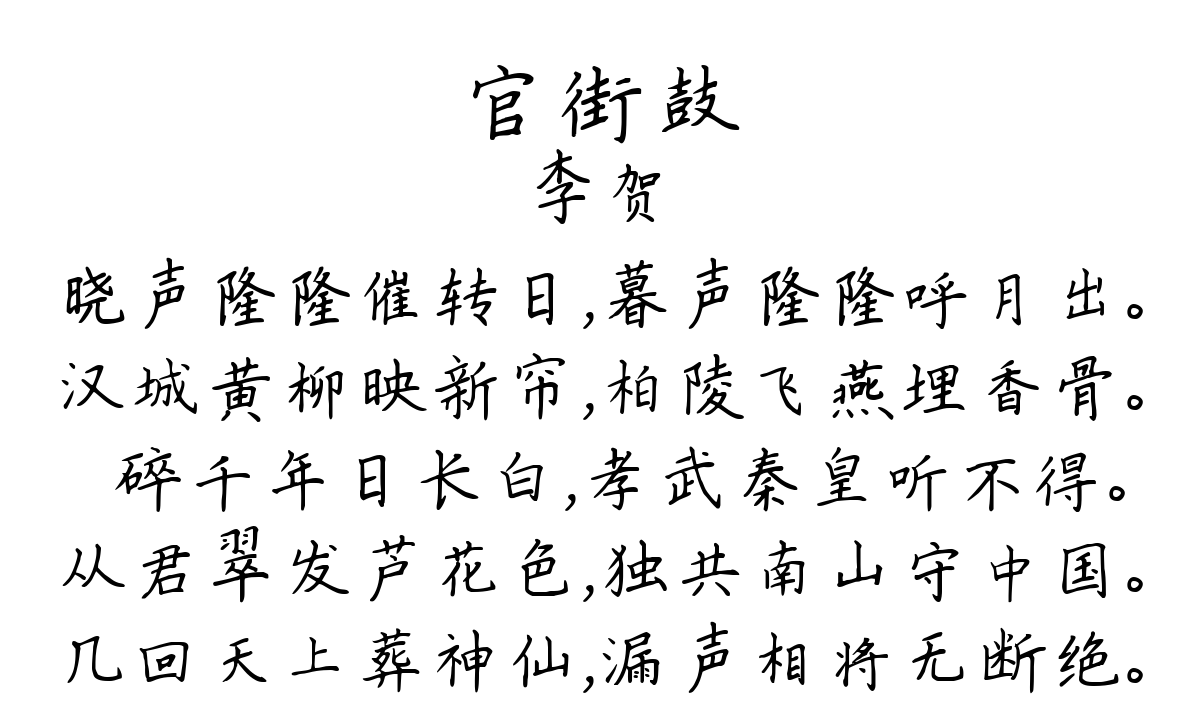 官街鼓
李贺
晓声隆隆催转日,暮声隆隆呼月出。
汉城黄柳映新帘,柏陵飞燕埋香骨。
碎千年日长白,孝武秦皇听不得。
从君翠发芦花色,独共南山守中国。
几回天上葬神仙,漏声相将无断绝。